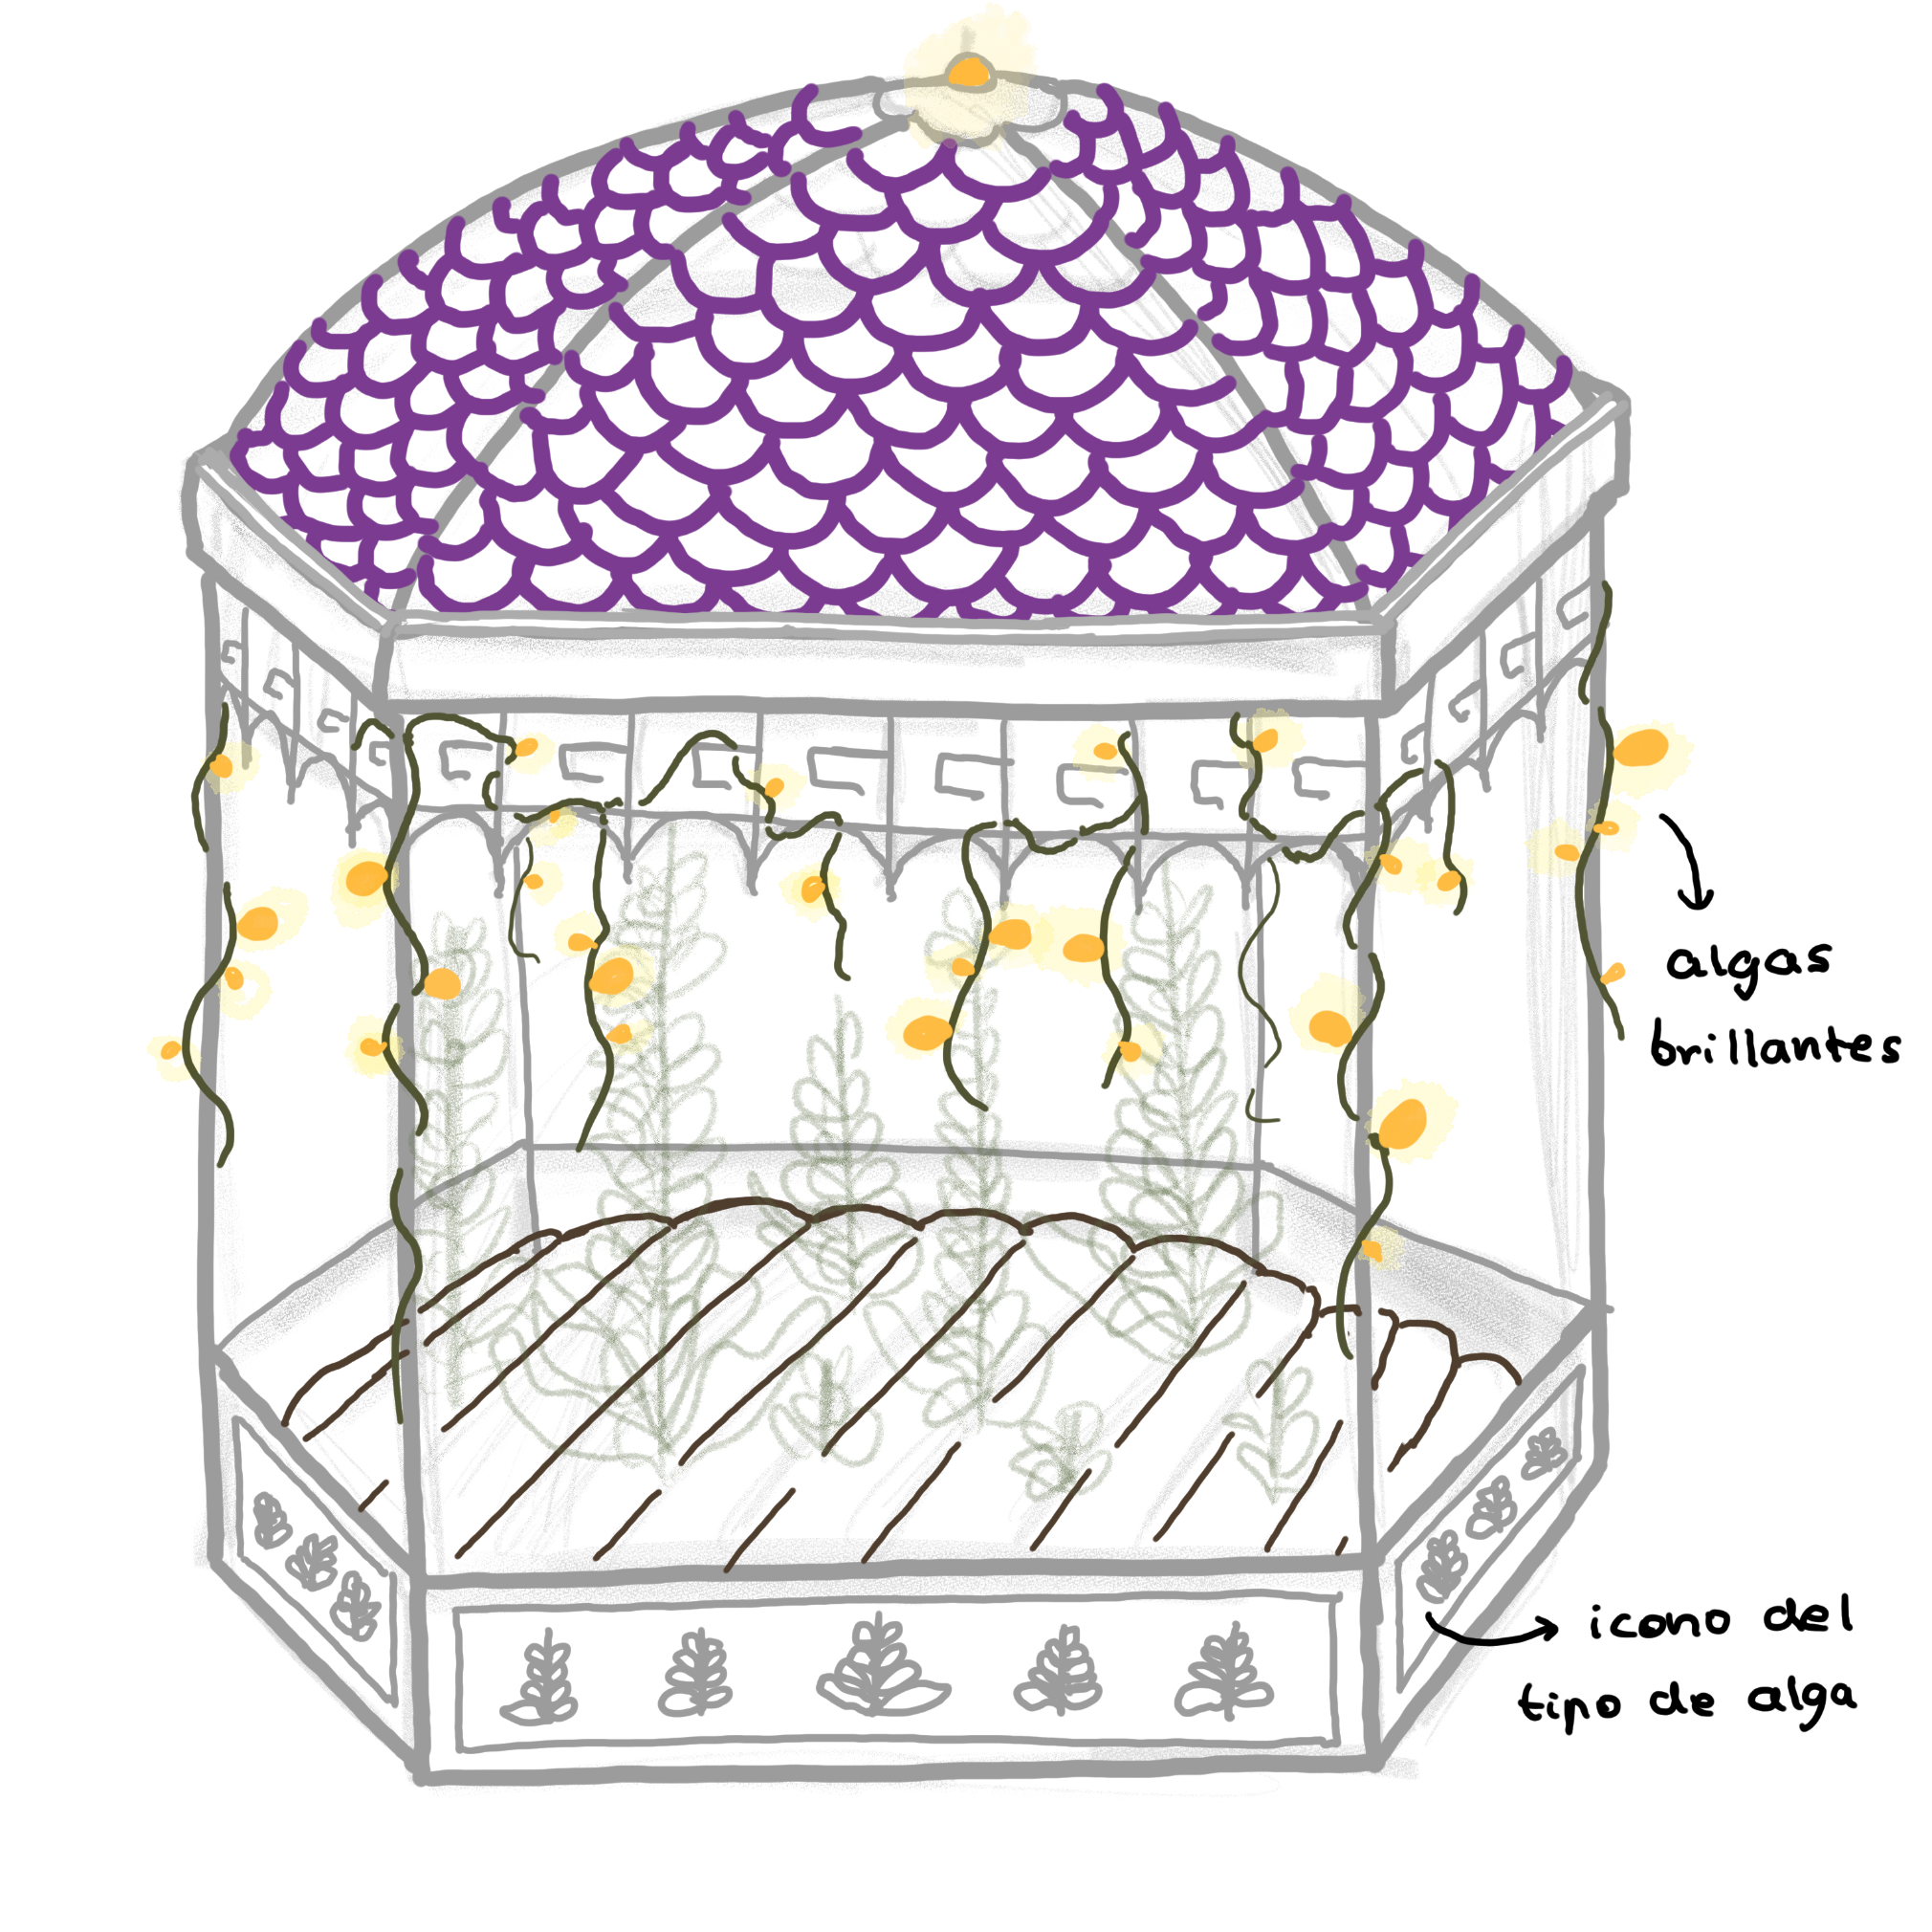 algas
brillantes
icono del
tipo de alga